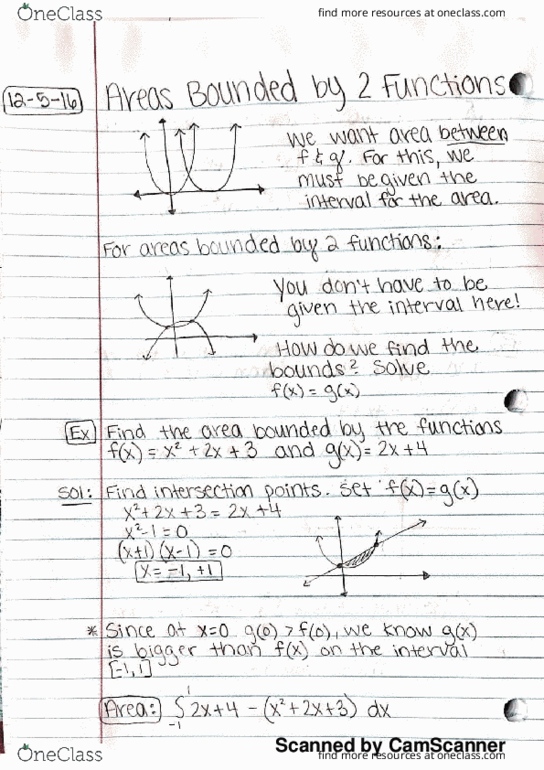 OneClass
find more resources at oneclass.com
12-5-16
Areas Bounded by 2 Functions
we want area between
f & g. For this, we
must be given the
interval for the area.
For areas bounded by 2 functions:
You don't have to be
given the interval here!
How do we find the
bounds? Solve
f(x) = g(x)
Ex Find the area bounded by the functions
f(x) = x² + 2x + 3 and g(x) = 2x + 4
Sol: Find intersection points. Set f(x) = g(x)
x² + 2x + 3 = 2x + 4
x² - 1 = 0
(x+1)(x-1) = 0
x = -1, +1
* Since at x=0 g(0) > f(0), we know g(x)
is bigger than f(x) on the interval
[-1,1]
Area: ∫₋₁¹ 2x+4 - (x²+2x+3) dx
Scanned by CamScanner
OneClass
find more resources at oneclass.com